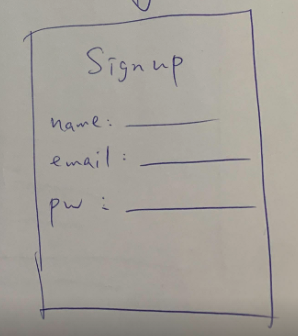 Sign up
name:
email:
pw :